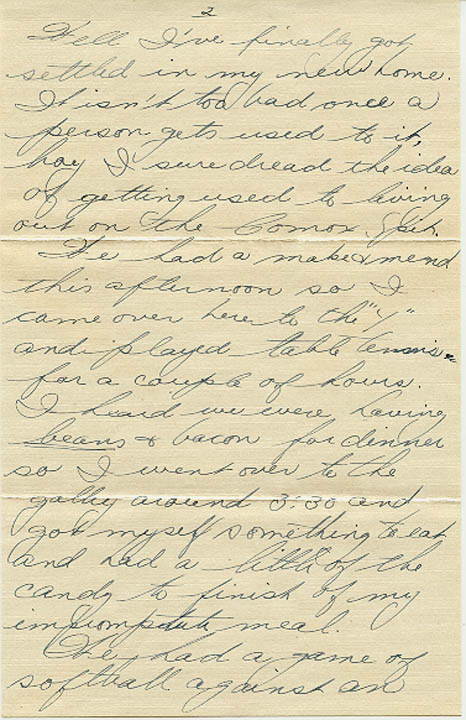 2
Well I've finally got
settled in my new home.
It isn't too bad once a
person gets used to it,
boy I sure dread the idea
of getting used to living
out on the Comox Spit.
We had a make & mend
this afternoon so I
came over here to the "Y"
and played table tennis
for a couple of hours.
I heard we were having
beans & bacon for dinner
so I went over to the
galley around 3:30 and
got myself something to eat
and had a little of the
candy to finish of my
impromptu meal.
We had a game of
softball against an